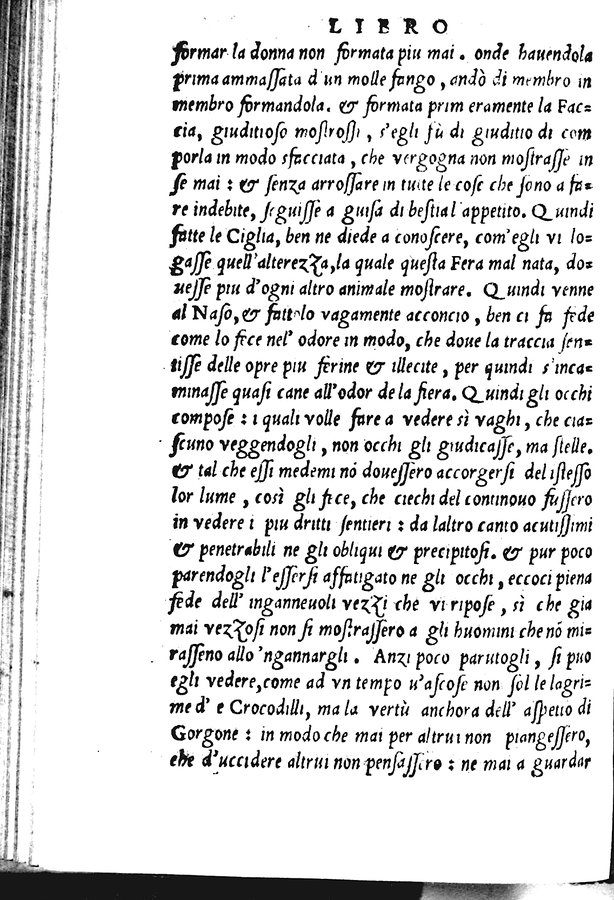 LIBRO
formar la donna non formata piu mai. onde hauendola
prima ammassata d'un molle fango, andò di membro in
membro formandola. & formata prim eramente la Fac=
cia, giuditioso mostrossi, s'egli fù di giuditio di com
porla in modo sfacciata, che vergogna non mostrasse in
se mai: & senza arrossare in tutte le cose che sono a fa=
re indebite, seguisse a guisa di bestial'appetito. Quindi
fatte le Ciglia, ben ne diede a conoscere, com'egli vi lo-
gasse quell'alterezza, la quale questa Fera mal nata, do-
uesse piu d'ogni altro animale mostrare. Quindi venne
al Naso, & fattolo vagamente acconcio, ben ci fa fede
come lo fece nel' odore in modo, che doue la traccia sen-
tisse delle opre piu ferine & illecite, per quindi s'inca=
minasse quasi cane all'odor de la fiera. Quindi gli occhi
compose: i quali volle fare a vedere sì vaghi, che cia=
scuno veggendogli, non occhi gli giudicasse, ma stelle.
& tal che essi medemi nō douessero accorgersi del istesso
lor lume, così gli fece, che ciechi del continouo fussero
in vedere i piu dritti sentieri: da laltro canto acutissimi
& penetrabili ne gli obliqui & precipitosi. & pur poco
parendogli l'essersi affatigato ne gli occhi, eccoci piena
fede dell' inganneuoli vezzi che vi ripose, sì che gia
mai vezzosi non si mostrassero a gli huomini che nō mi-
rasseno allo 'ngannargli. Anzi poco parutogli, si puo
egli vedere, come ad vn tempo u'ascose non sol le lagri=
me d' e Crocodilli, ma la vertù anchora dell' aspetto di
Gorgone: in modo che mai per altrui non piangessero,
che d'uccidere altrui non pensassero: ne mai a guardar